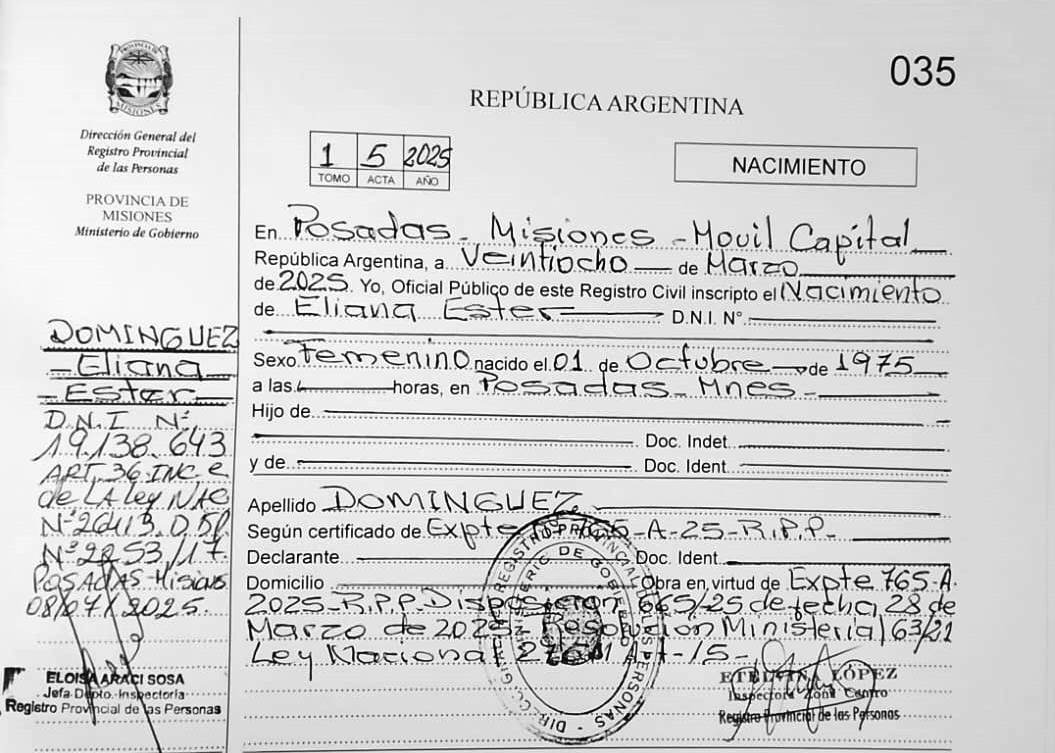 PROVINCIA DE
MISIONES
Dirección General del
Registro Provincial
de las Personas
PROVINCIA DE
MISIONES
Ministerio de Gobierno
DOMINGUEZ
Eliana
Ester
D.N.I Nº
19.138.643
ART. 36 INC. e
de LA Ley NAC
Nº 26413. D.SP.
Nº 2253/17.
POSADAS-Misiones
08/07/2025.
ELOISA ARACI SOSA
Jefa Dpto. Inspectoría
Registro Provincial de las Personas
035
REPÚBLICA ARGENTINA
1 5 2025
TOMO ACTA AÑO
NACIMIENTO
En Posadas - Misiones - Movil Capital
República Argentina, a Veintiocho de Marzo
de 2025. Yo, Oficial Público de este Registro Civil inscripto el Nacimiento
de Eliana Ester D.N.I. N°.
Sexo Femenino nacido el 01 de Octubre de 1975
a las horas, en Posadas - Mnes -
Hijo de
Doc. Indet.
y de Doc. Ident.
Apellido DOMINGUEZ
Según certificado de Expte Nº 765-A-25-R.P.P.
Declarante Doc. Ident.
Domicilio Obra en virtud de Expte 765-A-
2025-R.P.P. Disposición 665/25 de fecha 28 de
Marzo de 2025 - Resolución Ministerial 63/21
Ley Nacional Art-15-
LÓPEZ
Inspectora Zona Centro
Registro Provincial de las Personas